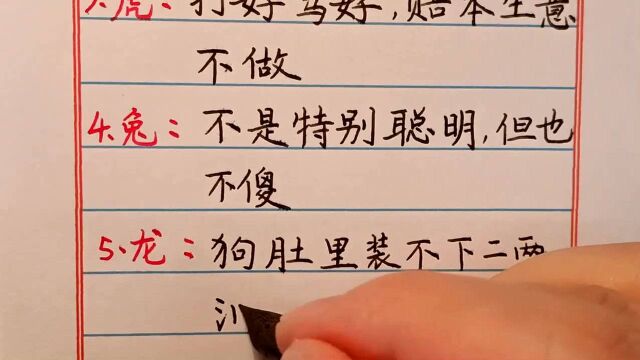 3.虎：打好骂好,赔本生意
不做
4.兔：不是特别聪明,但也
不傻
5.龙：狗肚里装不下二两